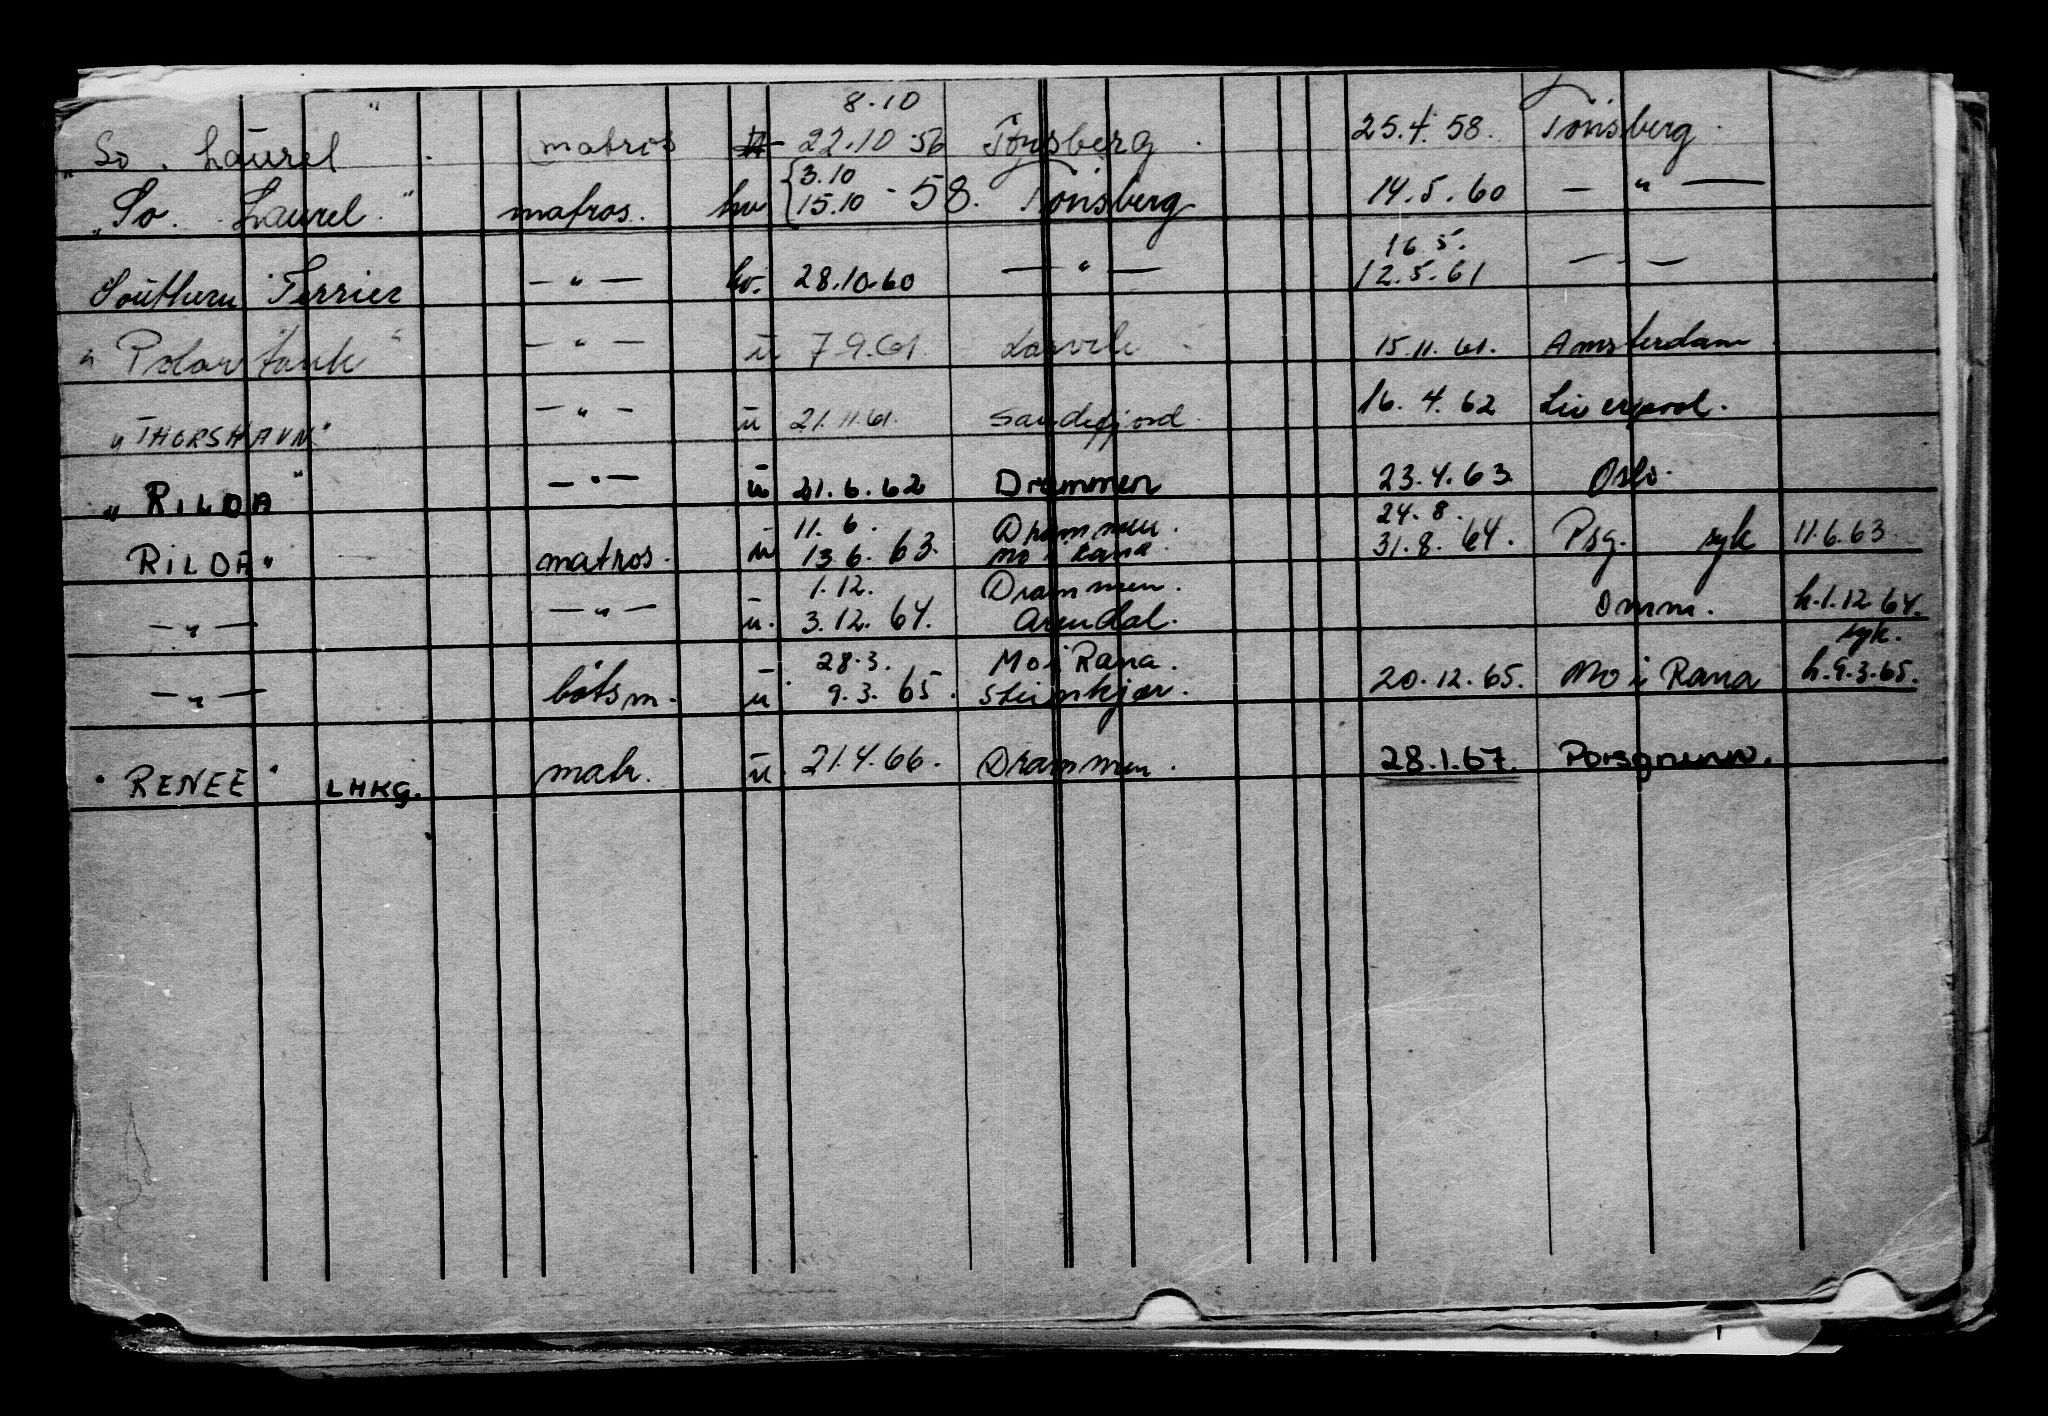 8.10
"So. Laurel" matros 22.10 56 Tönsberg. 25.4.58. Tönsberg.
3.10
"So. Laurel." matros. hv 15.10 - 58. Tönsberg 14.5.60 — " —
16 5.
Southern Terrier — " — hv. 28.10.60 — " — 12.5.61 — " —
" Polartank " — " — u 7.9.61. Larvik 15.11.61. Amsterdam
" THORSHAVN" — " — u 21.11.61. Sandefjord. 16.4.62 Liverpool.
" RILDA " — " — u 21.6.62 Drammen 23.4.63 Oslo.
11.6. Drammen. 24.8.
RILDA" matros. u 13 6. 63. Mo i Rana. 31.8.64. Psg. syk 11.6.63
1.12. Drammen.
— " — — " — u. 3.12.64. Arendal. Omm. h.1.12 64.
28.3. Mo i Rana. syk.
— " — båtsm. u 9.3.65. Steinkjær. 20.12.65. Mo i Rana h.9.3.65.
" RENEE " LHKG. matr. u 21.4.66. Drammen. 28.1.67. Porsgrunn.